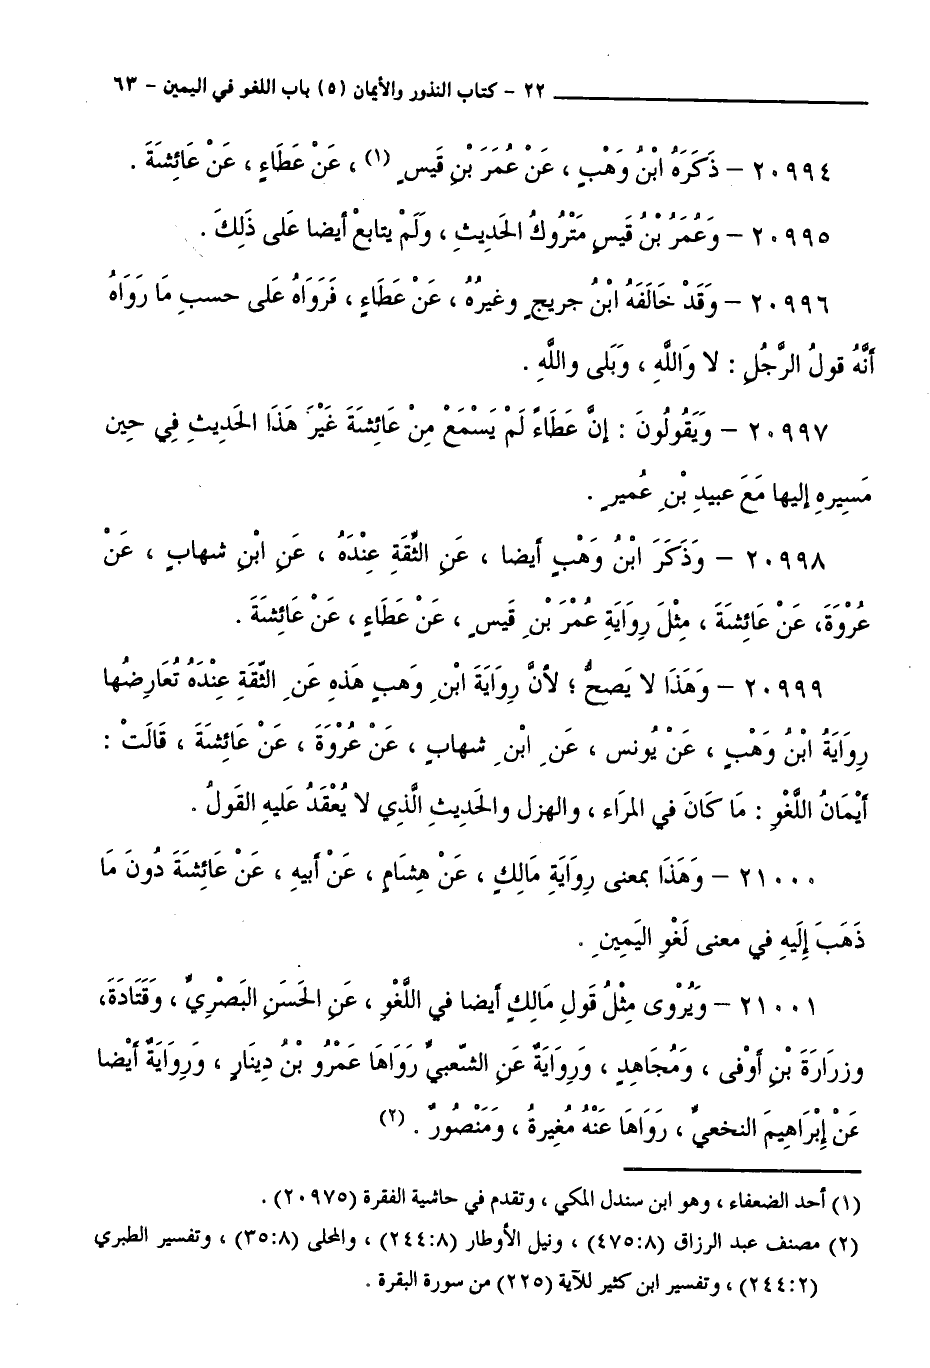 ٢٢ - كتاب النذور والأيمان (٥) باب اللغو في اليمين - ٦٣
٢٠٩٩٤ - ذَكَرَهُ ابْنُ وَهْبٍ ، عَنْ عُمَرَ بْنِ قَيسٍ (١) ، عَنْ عَطَاءٍ ، عَنْ عَائِشَةَ .
٢٠٩٩٥ - وَعُمَرُ بْنُ قَيسٍ مَتْرُوكُ الحَديثِ ، وَلَمْ يتابعْ أيضا عَلى ذَلِكَ .
٢٠٩٩٦ - وَقَدْ خَالَفَهُ ابْنُ جريجٍ وغيرُهُ ، عَنْ عَطَاءٍ ، فَرَوَاهُ عَلى حسبِ مَا رَوَاهُ
أَنَّهُ قولُ الرَّجُلِ : لا وَاللَّهِ ، وَبَلى واللَّهِ .
٢٠٩٩٧ - وَيَقُولُونَ : إنَّ عَطَاءً لَمْ يَسْمَعْ مِنْ عَائِشَةَ غَيْرَ هَذَا الحَديثِ فِي حِين
مَسِيرِهِ إليها مَعَ عبيدِ بْنِ عُميرٍ .
٢٠٩٩٨ - وَذَكَرَ ابْنُ وَهْبٍ أيضا ، عَنِ الثِّقَةِ عِنْدَهُ ، عَنِ ابْنِ شهابٍ ، عَنْ
عُرْوَةَ، عَنْ عَائِشَةَ ، مِثْلَ رِوَايَةِ عُمْرَ بْنِ قَيسٍ ، عَنْ عَطَاءٍ ، عَنْ عَائِشَةَ .
٢٠٩٩٩ - وَهَذَا لا يَصحُّ ؛ لأنَّ رِوَايَةَ ابْنِ وَهبٍ هَذهِ عَنِ الثِّقَةِ عِنْدَهُ تُعَارِضُها
رِوَايَةُ ابْنُ وَهْبٍ ، عَنْ يُونس ، عَنِ ابْنِ شهاب ، عَنْ عُرْوَةَ ، عَنْ عَائِشَةَ ، قَالَتْ :
أَيْمَانُ اللَّغْوِ : مَا كَانَ في المرَاء ، والهزل والحَديثِ الَّذي لا يُعْقَدُ عَليهِ القَولُ .
٢١٠٠٠ - وَهَذَا بمعنى رِوَايَةِ مَالِكٍ ، عَنْ هِشَامٍ ، عَنْ أبيهِ ، عَنْ عَائِشَةَ دُونَ مَا
ذَهَبَ إلَيهِ في معنى لَغْوِ اليَمِينِ .
٢١٠٠١ - وَيُرْوى مِثْلُ قَولِ مَالِكٍ أيضا في اللَّغْوِ ، عَنِ الحَسَنِ البَصْرِيِّ ، وَقَتَادَةَ،
وزرَارَةَ بْنِ أَوْفى ، وَمُجَاهِدٍ ، وَرِوَايَةٌ عَنِ الشّعبيِّ رَوَاهَا عَمْرُو بْنُ دِينَارٍ ، وَرِوَايَةٌ أيضا
عَنْ إِبْرَاهِيمَ النخعيِّ ، رَوَاهَا عَنْهُ مُغيرةُ ، وَمَنْصُورٌ . (٢)
(١) أحد الضعفاء ، وهو ابن سندل المكي ، وتقدم في حاشية الفقرة (٢٠٩٧٥) .
(٢) مصنف عبد الرزاق (٤٧٥:٨) ، ونيل الأوطار (٢٤٤:٨) ، والمحلى (٣٥:٨) ، وتفسير الطبري
(٢٤٤:٢) ، وتفسير ابن كثير للآية (٢٢٥) من سورة البقرة .